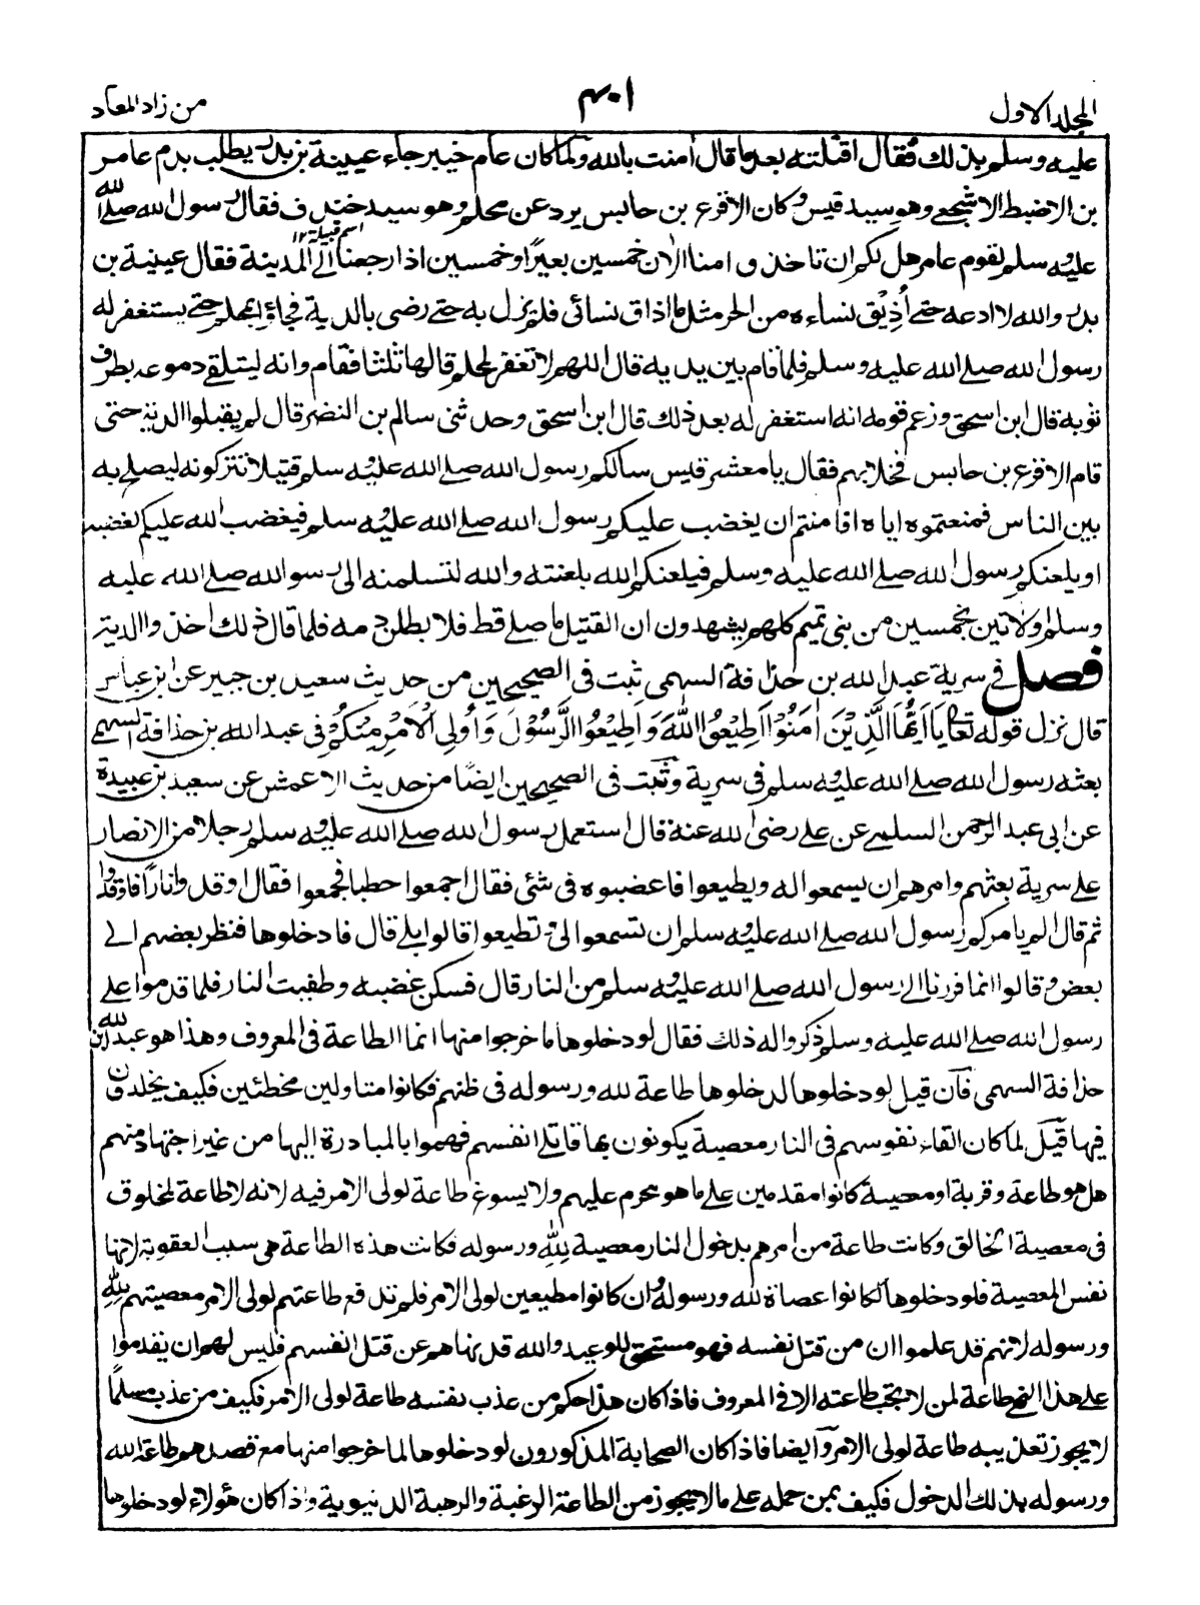 المجلد الاول
٤٠١
من زاد المعاد
عليه وسلم بذلك فقال اقتلته بعد ما قال امنت بالله ولما كان عام خيبر جاء عيينة بن بدر يطلب بدم عامر
بن الاضبط الاشجعي وهو سيد قيس وكان الاقرع بن حابس يرد عن محلم وهو سيد خندف فقال رسول الله صلى الله
اسم قبيلة ١٢
عليه وسلم لقوم عامر هل لكم ان تاخذوا منا الان خمسين بعيرًا وخمسين اذا رجعنا الى المدينة فقال عيينة بن
بدر والله لا ادعه حتى أُذِيْق نساءه من الحر مثل ما اذاق نسائي فلم يزل به حتى رضى بالدية فجاؤا بمحلم حتى يستغفر له
رسول الله صلى الله عليه وسلم فلما قام بين يديه قال اللهم لا تغفر لمحلم قالها ثلثا فقام وانه ليتلقى دموعه بطرف
ثوبه قال ابن اسحق وزعم قومه انه استغفر له بعد ذلك قال ابن اسحق وحدثنى سالم بن النضر قال لم يقبلوا الدية حتى
قام الاقرع بن حابس فخلا بهم فقال يا معشر قيس سالكم رسول الله صلى الله عليه وسلم قتيلا تتركونه ليصلح به
بين الناس فمنعتموه اياه افامنتم ان يغضب عليكم رسول الله صلى الله عليه وسلم فيغضب الله عليكم لغضبه
او يلعنكم رسول الله صلى الله عليه وسلم فيلعنكم الله بلعنته والله لتسلمنه الى رسو الله صلى الله عليه
وسلم ولاتين بخمسين من بنى تميم كلهم يشهدون ان القتيل ما صلى قط فلا بطلن دمه فلما قال ذلك اخذوا الدية
فصل فى سرية عبد الله بن حذافة السهمى ثبت فى الصحيحين من حديث سعيد بن جبير عن ابن عباس
قال نزل قوله تعالى يَا اَيُّهَا الَّذِيْنَ اٰمَنُوْا اَطِيْعُوا اللّٰهَ وَاَطِيْعُوا الرَّسُوْلَ وَأُولِى الْاَمْرِ مِنْكُمْ فى عبد الله بن حذافة السهمى
بعثه رسول الله صلى الله عليه وسلم فى سرية وثبت فى الصحيحين ايضًا من حديث الاعمش عن سعيد بن عبيدة
عن ابى عبد الرحمن السلمى عن على رضى الله عنه قال استعمل رسول الله صلى الله عليه وسلم رجلا من الانصار
على سرية بعثهم وامرهم ان يسمعوا له ويطيعوا فاغضبوه فى شئى فقال اجمعوا حطبا فجمعوا فقال اوقدوا نارًا فاوقدوا
ثم قال الم يامركم رسول الله صلى الله عليه وسلم ان تسمعوا لى وتطيعوا قالوا بلى قال فادخلوها فنظر بعضهم الى
بعض وقالوا انما فررنا الى رسول الله صلى الله عليه وسلم من النار قال فسكن غضبه وطفيت النار فلما قدموا على
رسول الله صلى الله عليه وسلم ذكروا له ذلك فقال لو دخلوها ما خرجوا منها انما الطاعة فى المعروف وهذا هو عبد الله بن
حذافة السهمى فآن قيل لو دخلوها لدخلوها طاعة لله ورسوله فى ظنهم فكانوا متاولين مخطئين فكيف يخلدون
فيها قيل لما كان القاء نفوسهم فى النار معصية يكونون بها قاتلى انفسهم فهموا بالمبادرة اليها من غير اجتهاد منهم
هل هو طاعة وقربة او معصية كانوا مقدمين على ما هو محرم عليهم ولا يسوغ طاعة لولى الامر فيه لانه لا طاعة لمخلوق
فى معصية الخالق وكانت طاعة من امرهم بدخول النار معصية لِلّٰهِ ورسوله فكانت هذه الطاعة هى سبب العقوبة لانها
نفس المعصية فلو دخلوها لكانوا عصاة لله ورسوله وان كانوا مطيعين لولى الامر فلم تدفع طاعتهم لولى الامر معصيتهم لِلّٰهِ
ورسوله لانهم قد علموا ان من قتل نفسه فهو مستحق للوعيد والله قد نهاهم عن قتل انفسهم فليس لهم ان يقدموا
على هذا النهى طاعة لمن لا تجب طاعته الا فى المعروف فاذا كان هذا حكم من عذب نفسه طاعة لولى الامر فكيف من عذب مسلمًا
لا يجوز تعذيبه طاعة لولى الامر وآيضا فاذا كان الصحابة المذكورون لو دخلوها لما خرجوا منها مع قصدهم طاعة الله
ورسوله بذلك الدخول فكيف بمن حمله على ما لا يجوز من الطاعة الرغبة والرهبة الدنيوية واذا كان هؤلاء لو دخلوها